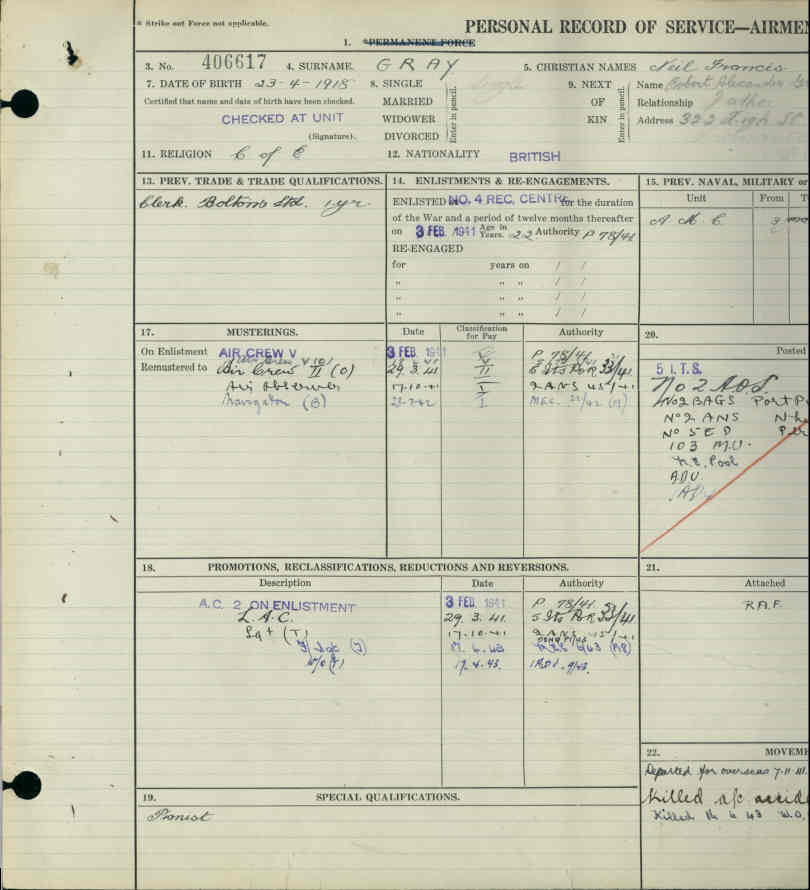 * Strike out Force not applicable.
PERSONAL RECORD OF SERVICE—AIRMEN
1. *PERMANENT FORCE
3. No. 406617 4. SURNAME. GRAY 5. CHRISTIAN NAMES Neil Francis
7. DATE OF BIRTH 23-4-1918 8. SINGLE 9. NEXT Name Robert Alexander
Certified that name and date of birth have been checked. MARRIED OF Relationship Father
CHECKED AT UNIT WIDOWER KIN Address 322 High St
(Signature). DIVORCED
Enter in pencil.
Enter in pencil.
11. RELIGION C of E 12. NATIONALITY BRITISH
13. PREV. TRADE & TRADE QUALIFICATIONS. 14. ENLISTMENTS & RE-ENGAGEMENTS. 15. PREV. NAVAL, MILITARY or
Clerk. Boltons Ltd. 1 yr. ENLISTED NO. 4 REC. CENTRE for the duration Unit From
of the War and a period of twelve months thereafter A M C
on 3 FEB. 1941 Age in Years. 22 Authority P 78/41
RE-ENGAGED
for years on / /
" " " / /
" " " / /
" " " / /
17. MUSTERINGS. Date Classification for Pay Authority 20.
Posted
On Enlistment AIR CREW V 3 FEB. 1941 V P 78/41 5 I.T.S.
Remustered to Air Crew II (O) 29.3.41 II 5 Its POR 33/41 No 2 AOS
Air Observer 17-10-41 2 ANS 45/41 No2 BAGS Port P
Navigator (B) I No 2 ANS
No 5 E D
103 M.U.
M.E. Pool
ADU
18. PROMOTIONS, RECLASSIFICATIONS, REDUCTIONS AND REVERSIONS. 21.
Description Date Authority Attached
A.C. 2 ON ENLISTMENT 3 FEB. 1941 P 78/41 R.A.F.
L.A.C. 29.3.41. 5 Its POR 33/41
Sgt (T) 17-10-41 2 ANS 45/41
F/Sgt (T)
W/O (T) 17.4.43.
22. MOVEME
Departed for overseas 7-11-41.
19. SPECIAL QUALIFICATIONS. Killed a/c accide
Pianist Killed